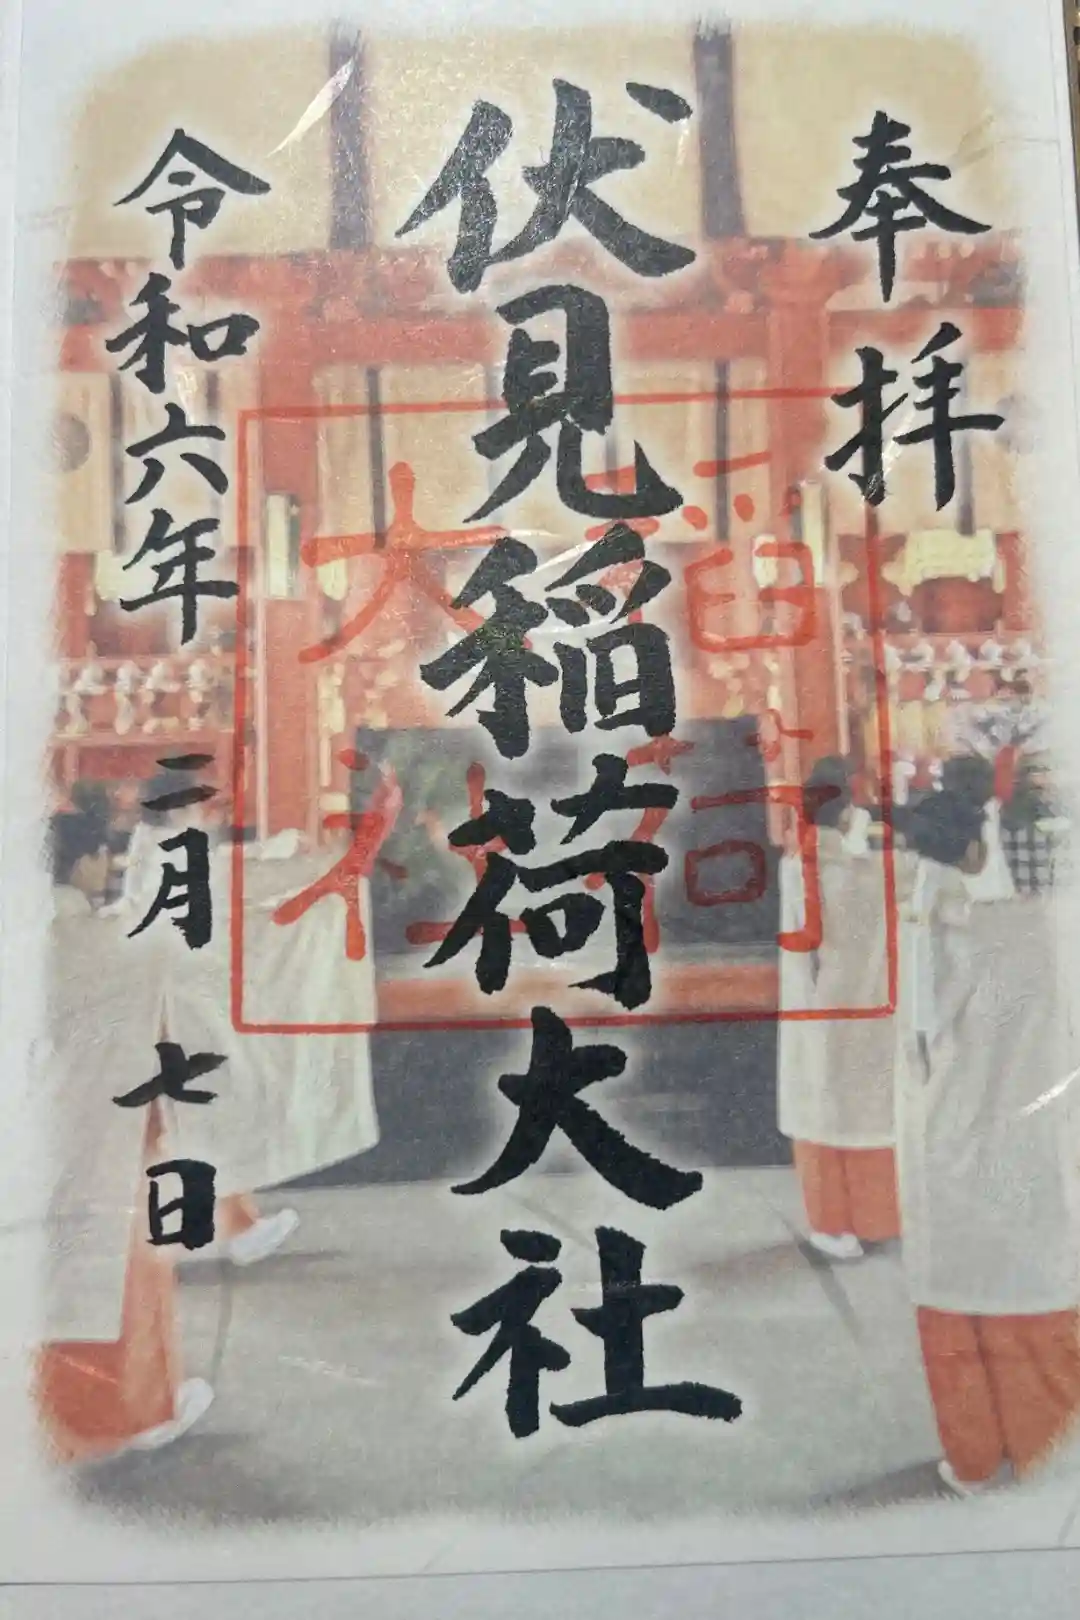 奉拝
伏見稲荷大社
令和六年 二月 七日
稲荷
大社